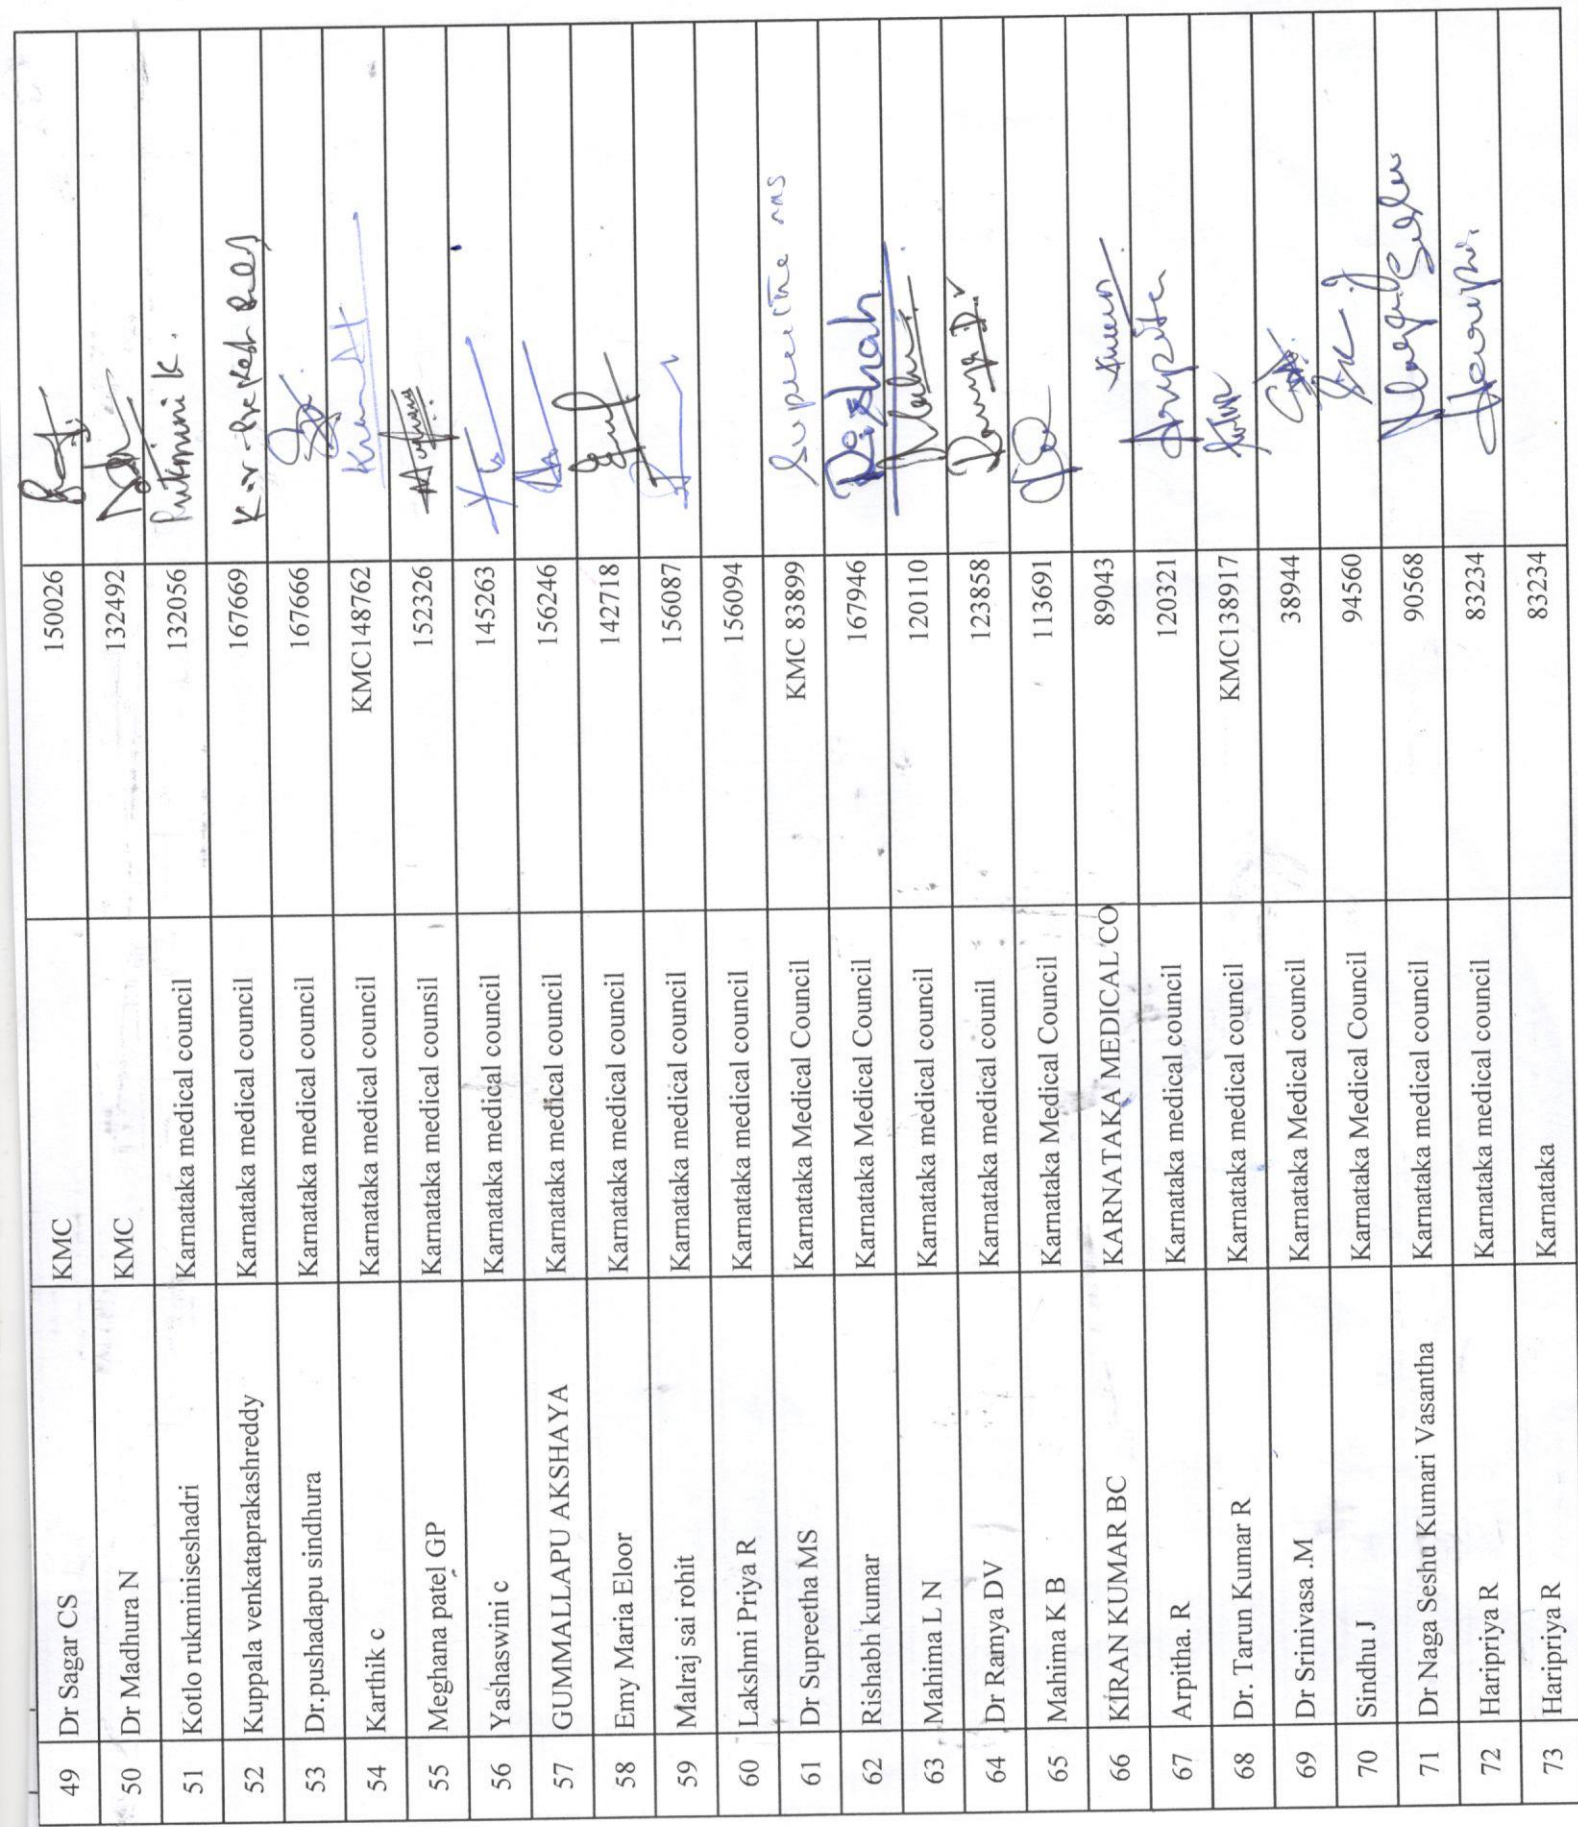 49 Dr Sagar CS KMC 150026
50 Dr Madhura N KMC 132492
51 Kotlo rukminiseshadri Karnataka medical council 132056 Rukmini K.
52 Kuppala venkataprakashreddy Karnataka medical council 167669
53 Dr.pushadapu sindhura Karnataka medical council 167666
54 Karthik c Karnataka medical council KMC148762
55 Meghana patel GP Karnataka medical counsil 152326
56 Yashaswini c Karnataka medical council 145263
57 GUMMALLAPU AKSHAYA Karnataka medical council 156246
58 Emy Maria Eloor Karnataka medical council 142718
59 Malraj sai rohit Karnataka medical council 156087
60 Lakshmi Priya R Karnataka medical council 156094
61 Dr Supreetha MS Karnataka Medical Council KMC 83899 Supreetha MS
62 Rishabh kumar Karnataka Medical Council 167946 Rishabh
63 Mahima L N Karnataka medical council 120110
64 Dr Ramya DV Karnataka medical counil 123858 Ramya D.V
65 Mahima K B Karnataka Medical Council 113691
66 KIRAN KUMAR BC KARNATAKA MEDICAL CO 89043
67 Arpitha. R Karnataka medical council 120321 Arpitha
68 Dr. Tarun Kumar R Karnataka medical council KMC138917
69 Dr Srinivasa .M Karnataka Medical council 38944
70 Sindhu J Karnataka Medical Council 94560
71 Dr Naga Seshu Kumari Vasantha Karnataka medical council 90568
72 Haripriya R Karnataka medical council 83234
73 Haripriya R Karnataka 83234